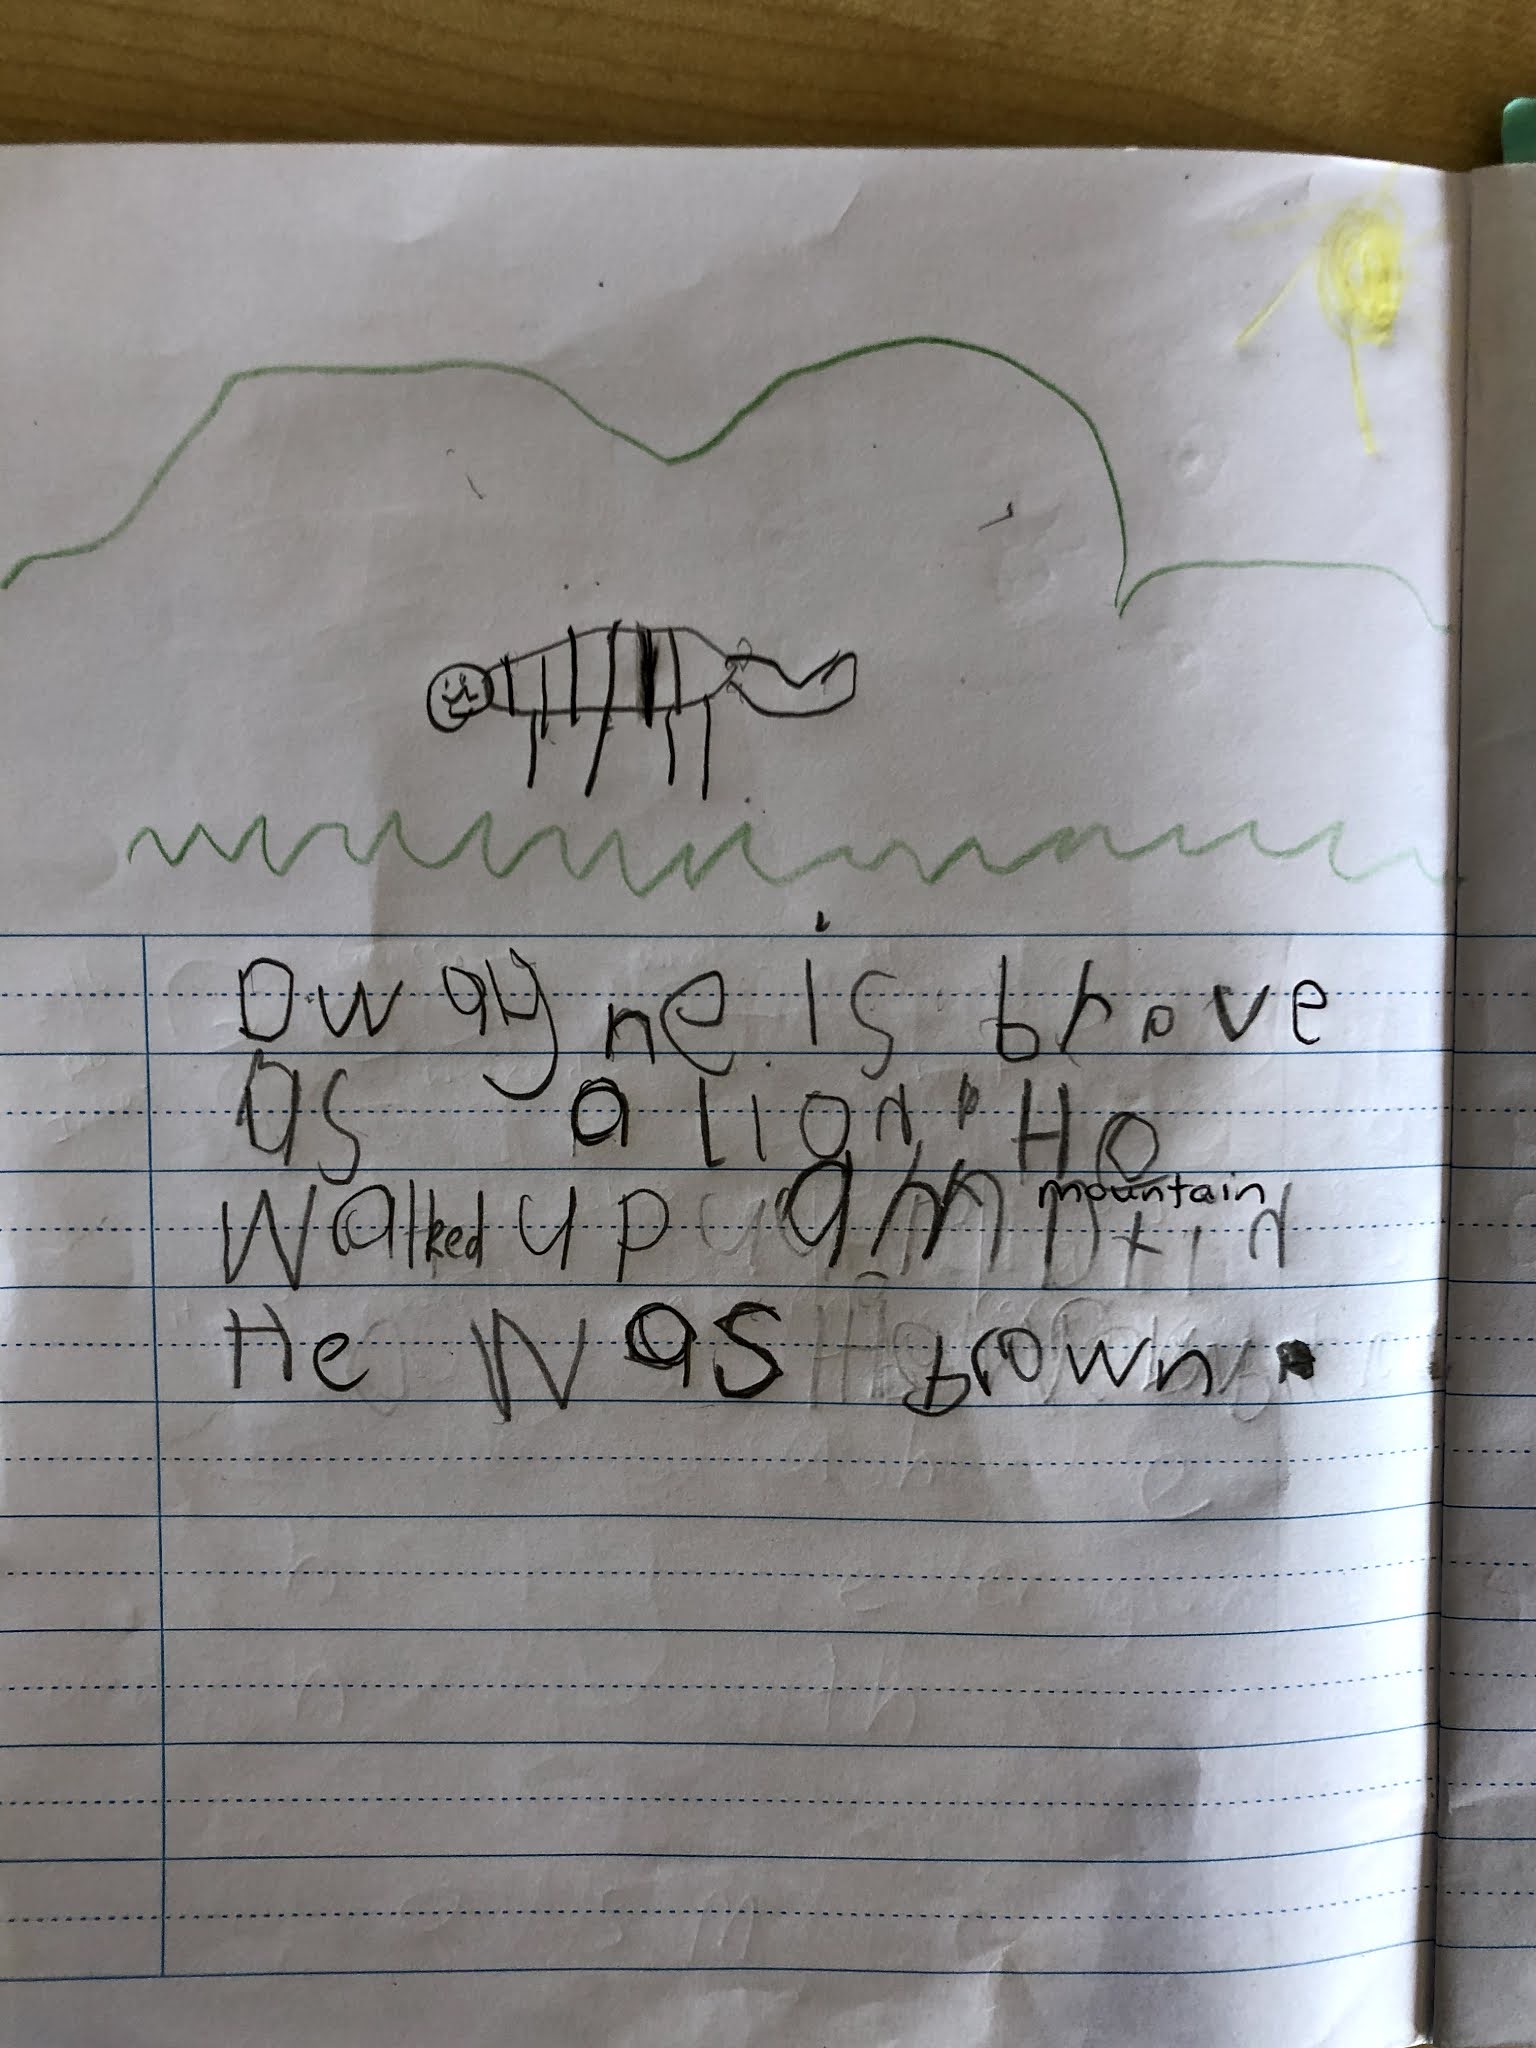 Dwayne is brave
as a lion. He
mountain
Walked up a
He was brown.